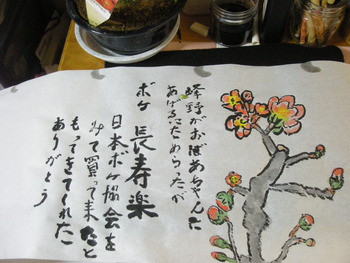 蜂野がおばあちゃんに
あげるにためらったが
ボケ 長寿楽
日本ボケ協会を
みて買って来たと
もってきてくれた
ありがとう